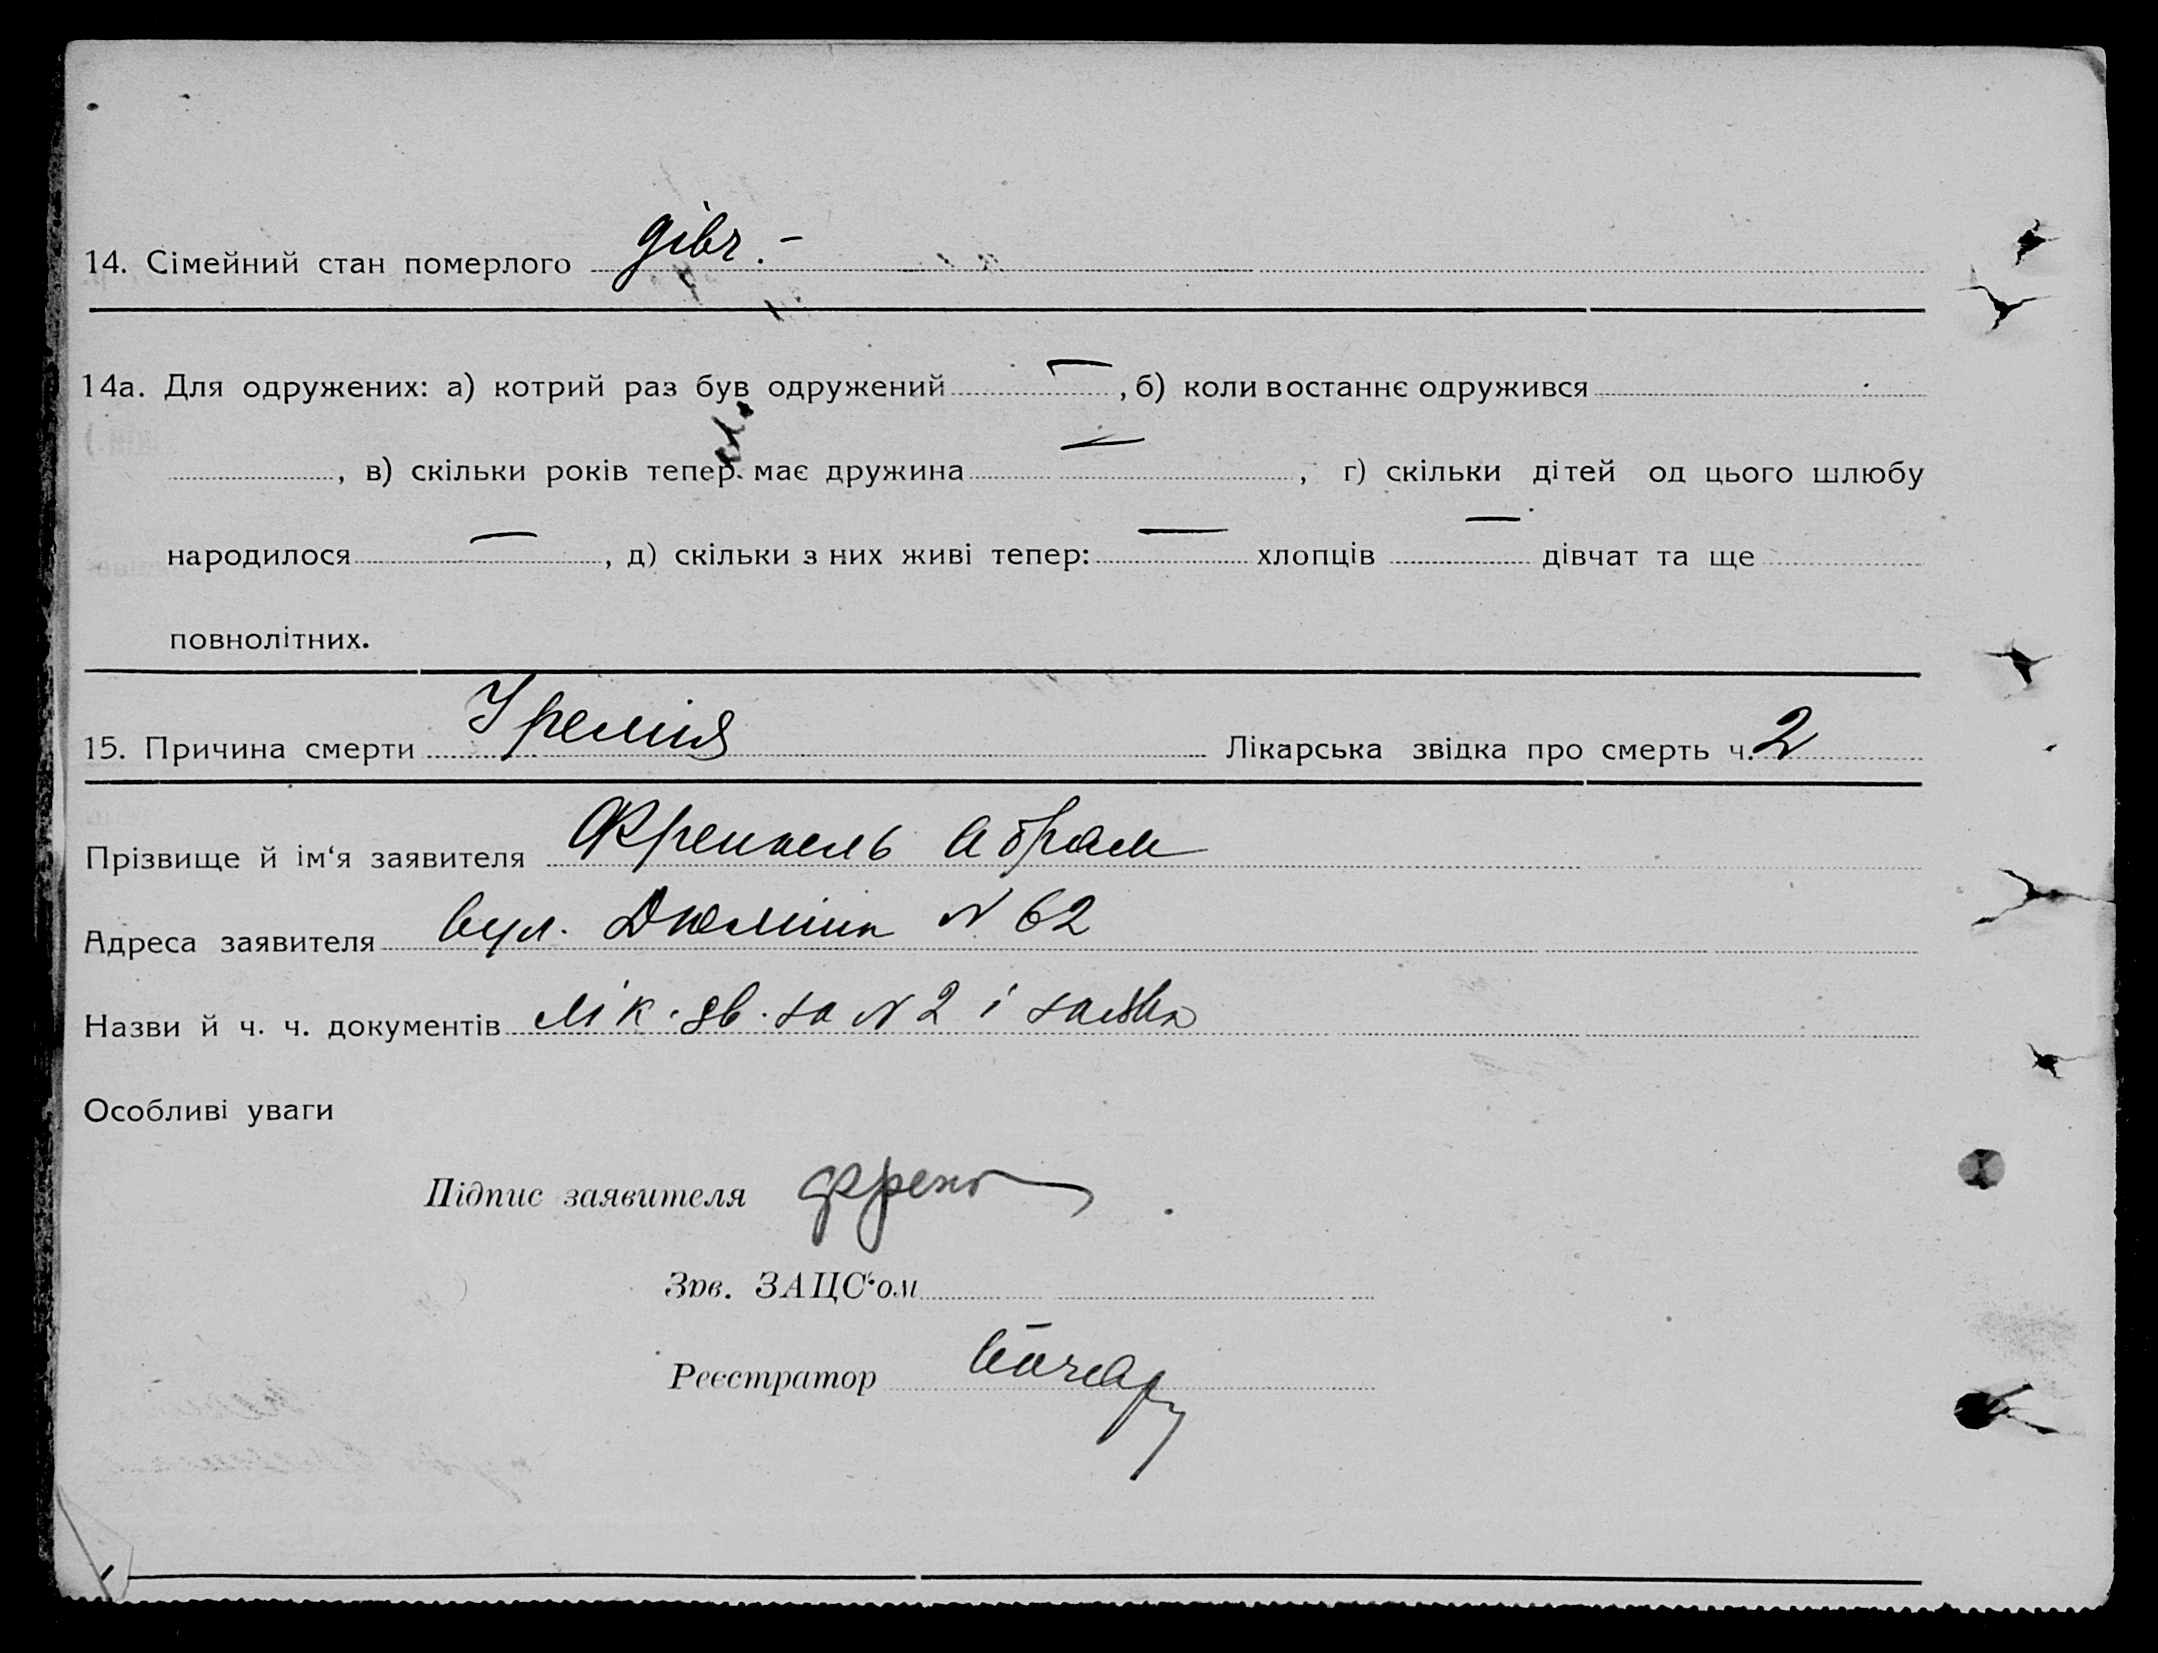 14. Сімейний стан померлого дівч. –
14а. Для одружених: а) котрий раз був одружений —, б) коли востаннє одружився
, в) скільки років тепер має дружина —, г) скільки дітей од цього шлюбу
народилося —, д) скільки з них живі тепер: — хлопців — дівчат та ще
повнолітних.
15. Причина смерти Уремія Лікарська звідка про смерть ч. 2
Прізвище й ім'я заявителя Френкель Абрам
Адреса заявителя вул. N 62
Назви й ч. ч. документів Лік. зв. за N 2 і заява
Особливі уваги
Підпис заявителя
Зав. ЗАЦС'ом
Реєстратор